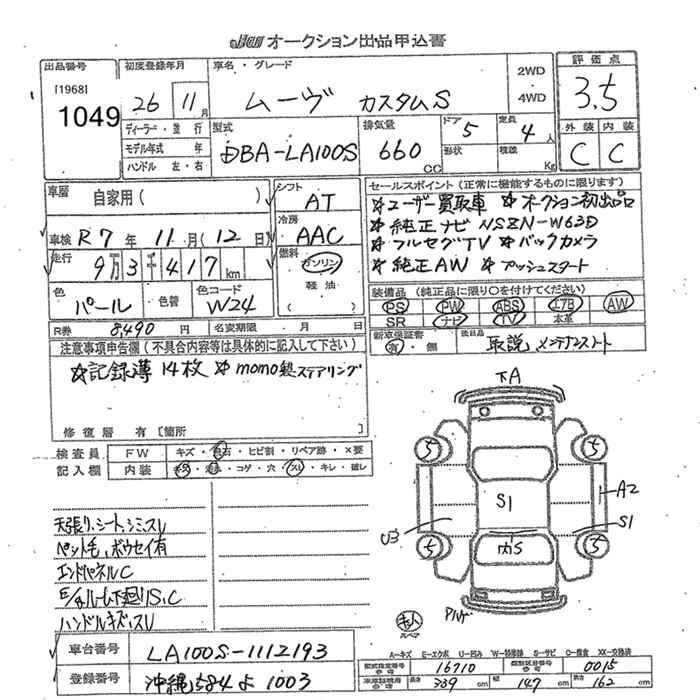 オークション出品申込書
出品番号 初度登録年月 車名・グレード 2WD 評価点
[1968] 1049 26 11月 ムーヴ カスタムS 4WD 3.5
ディーラー・並行 型式 排気量 ドア 定員 外装 内装
モデル年式 年 DBA-LA100S 660 CC 5 4人 C C
ハンドル 左・右 形状 積載 Kg
車歴 自家用( ) シフト AT セールスポイント(正常に機能するものに限ります)
☆ユーザー買取車 ☆オークション初出品
車検 R7年 11月(12日) 冷房 AAC ☆純正ナビ NSZN-W63D
走行 9万3千417km 燃料 ガソリン ☆フルセグTV ☆バックカメラ
軽油 ☆純正AW ☆プッシュスタート
色 パール 色替 色コード W24 ( )
装備品(純正品に限り○を付けてください)
PS PW ABS エアB AW
SR ナビ TV 本革
R券 8490円 名変期限 月 日
新車保証書 有・無 後日品 取説 メンテナンスノート
注意事項申告欄(不具合内容等は具体的に記入して下さい)
☆記録簿14枚 ☆momo製ステアリング
修復歴 有[箇所
検査員 FW キズ・飛石・ヒビ割・リペア跡・×要
記入欄 内装 コゲ・穴・スレ・キレ・破レ
下A
5 5
S1 A2
U3 S1
5 内S 5
天張り、シート、シミ、スレ
ペット毛、ボウセイ有
エンドパネルC
E/gルーム下廻りS、C
ハンドルキズ、スレ
スペア
A-キズ E-エクボ U-凹み W-補修跡 S-サビ C-腐食 XX-交換済
車台番号 LA100S-1112193
型式指定番号 16710 類別区分番号 0015
登録番号 沖縄584よ1003
長さ 339cm 幅 147cm 高さ 162cm